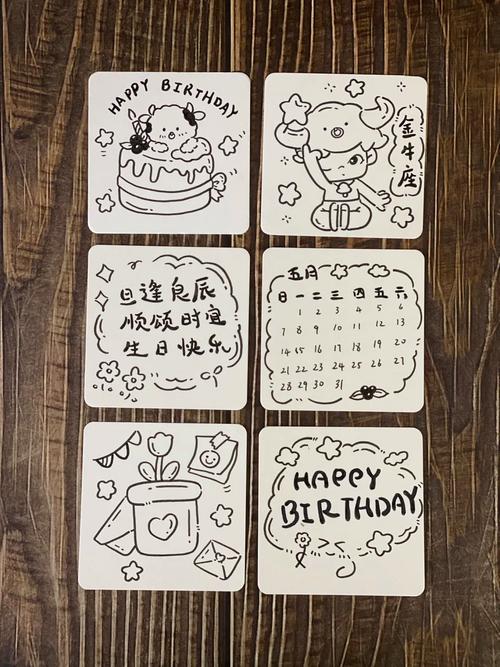 HAPPY BIRTHDAY
金牛座
旦逢良辰
顺颂时宜
生日快乐
五月
日 一 二 三 四 五 六
1 2 3 4 5 6
7 8 9 10 11 12 13
14 15 16 17 18 19 20
21 22 23 24 25 26 27
28 29 30 31
HAPPY
BIRTHDAY